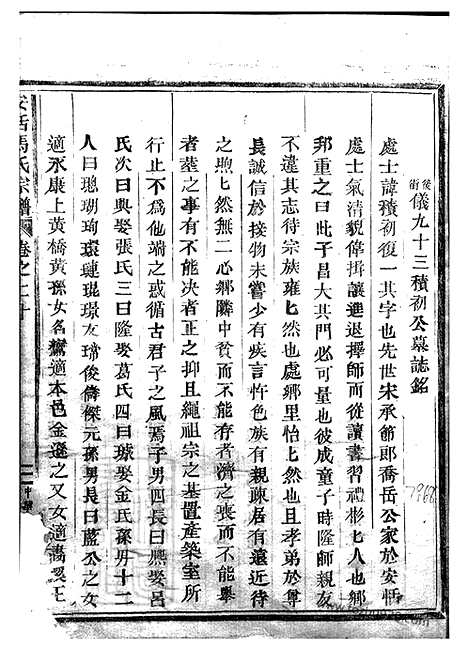 後街儀九十三積初公墓誌銘
處士諱積初復一其字也先世宋承節郎喬岳公家於安恬
處士氣清貌偉揖讓進退擇師而從讀書習禮彬七人也鄉
邦重之以此子昌大其門必彼成童子時隆師親友
不違其志待宗族雍七然也處鄉里怡七然也且孝弟於尊
長誠信於接物未嘗少有疾言忤色族有親疎居有遠近待
之煦七然無二心鄉隣中貧而不能存者濟之喪而不能舉
者塟之事有不能决者正之抑且繩祖宗之基置產築室所
行止不為他端之循古君子之風焉子男四長曰熈娶呂
氏次曰興娶張氏三曰隆娶葛氏四曰娶金氏孫男十二
人曰璁瑚瑜環璉琨璟友瑺俊儔傑元孫男長曰藍公之女
適永康上黃橋黃孫女名鸞適本邑金邊之又女適喬王
安恬馬氏宗譜
卷之二十
中
7968